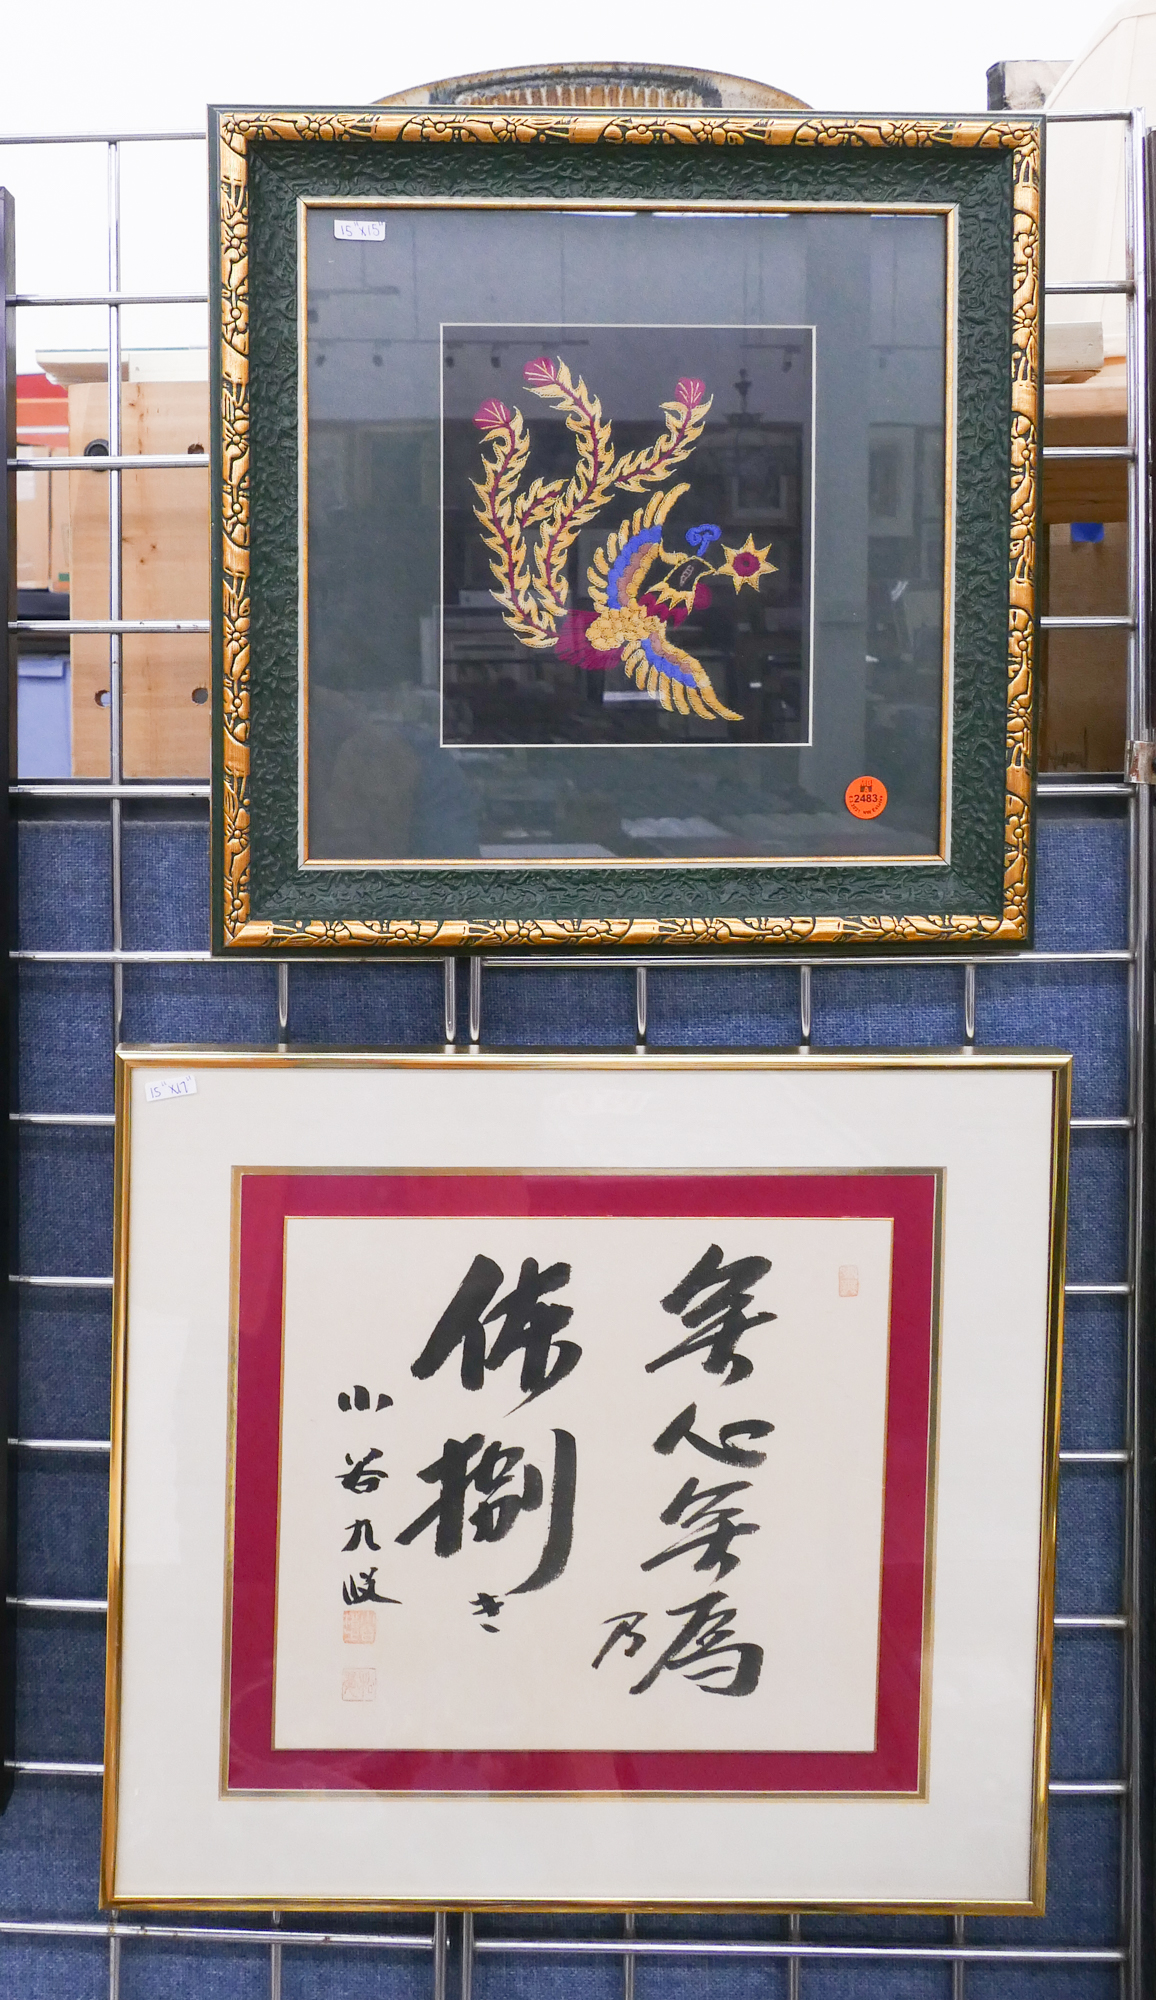 15"x15"
2483
15"x17"
無心無為乃
体捌き
小谷九段